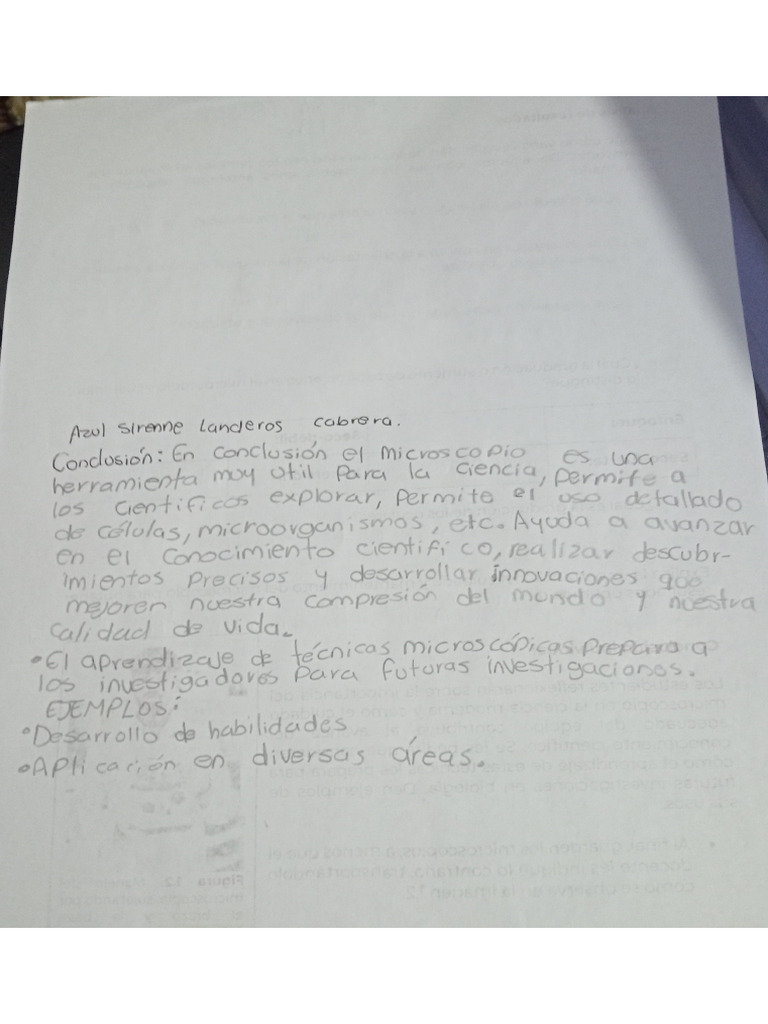 Azul Sirenne Landeros Cabrera.
Conclusión: En conclusión el microscopio es una
herramienta muy util para la ciencia, permite a
los cientificos explorar, permite el uso detallado
de células, microorganismos, etc. Ayuda a avanzar
en el conocimiento cientifico, realizar descubr-
imientos precisos y desarrollar innovaciones que
mejoren nuestra compresión del mundo y nuestra
calidad de vida.
• El aprendizaje de técnicas microscópicas prepara a
los investigadores para futuras investigaciones.
EJEMPLOS:
• Desarrollo de habilidades
• Aplicación en diversas áreas.